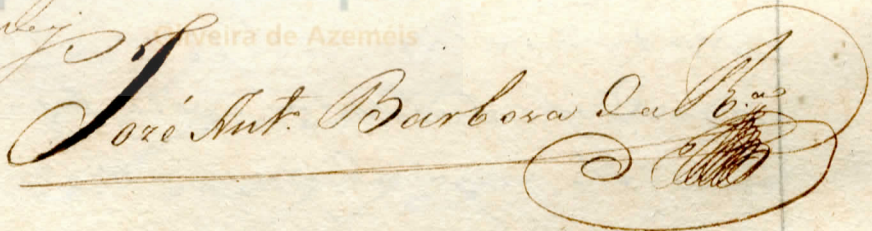 Oliveira de Azeméis
Jozé Ant.º Barbosa da R.